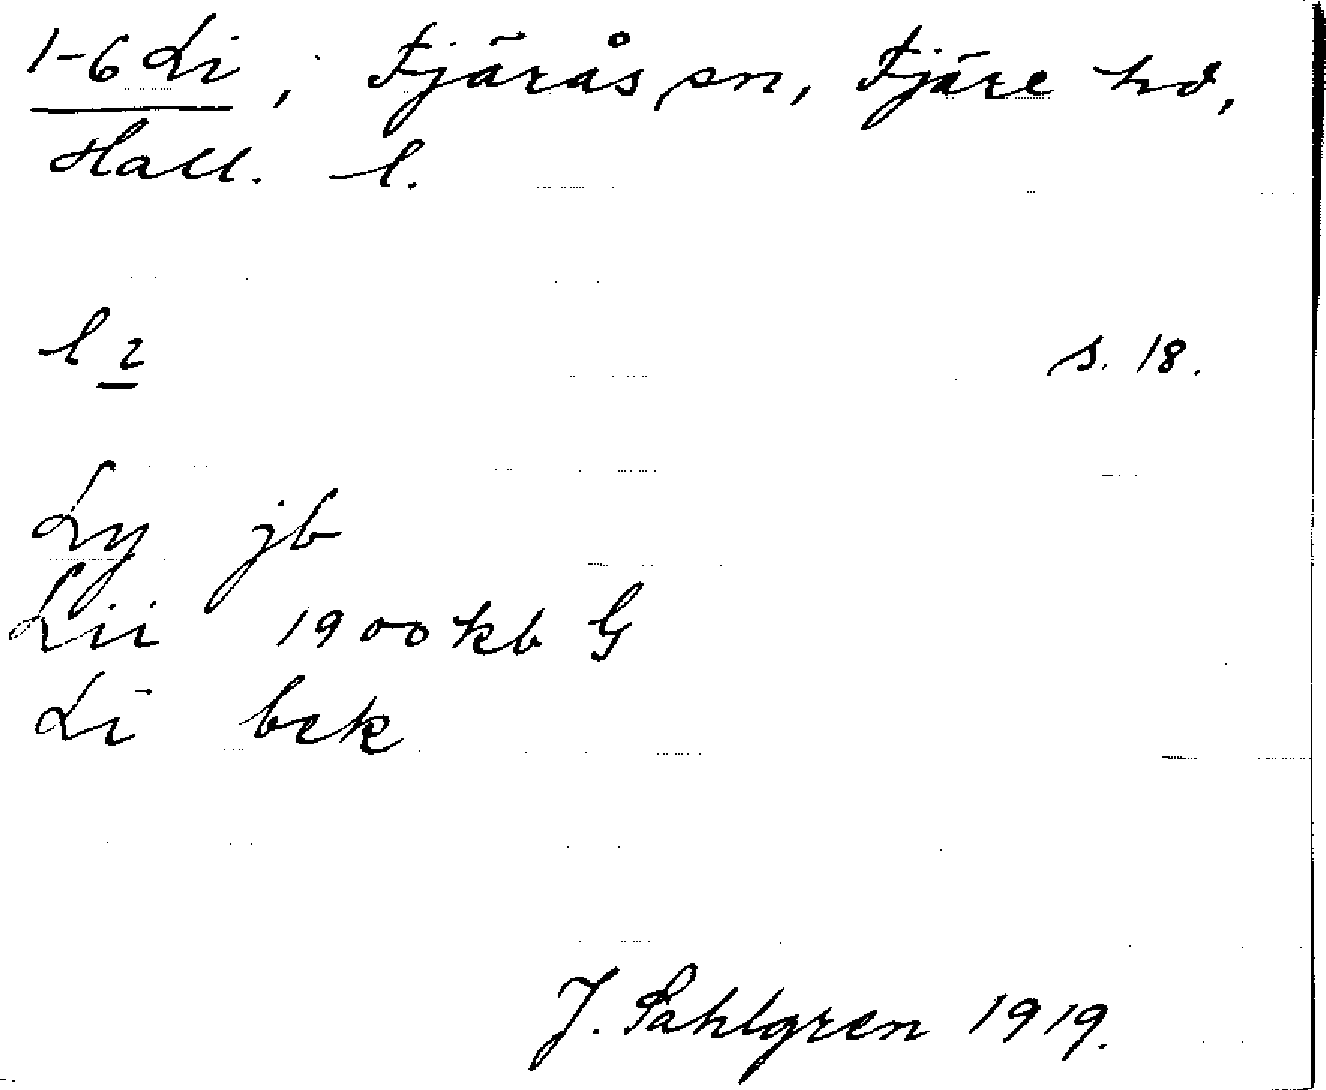 1-6 Li, Fjärås sn, Fjäre hd,
Hall. l.
l ı s. 18.
Ly jb
Lii 1900 kb G
Li bek
J. Sahlgren 1919.